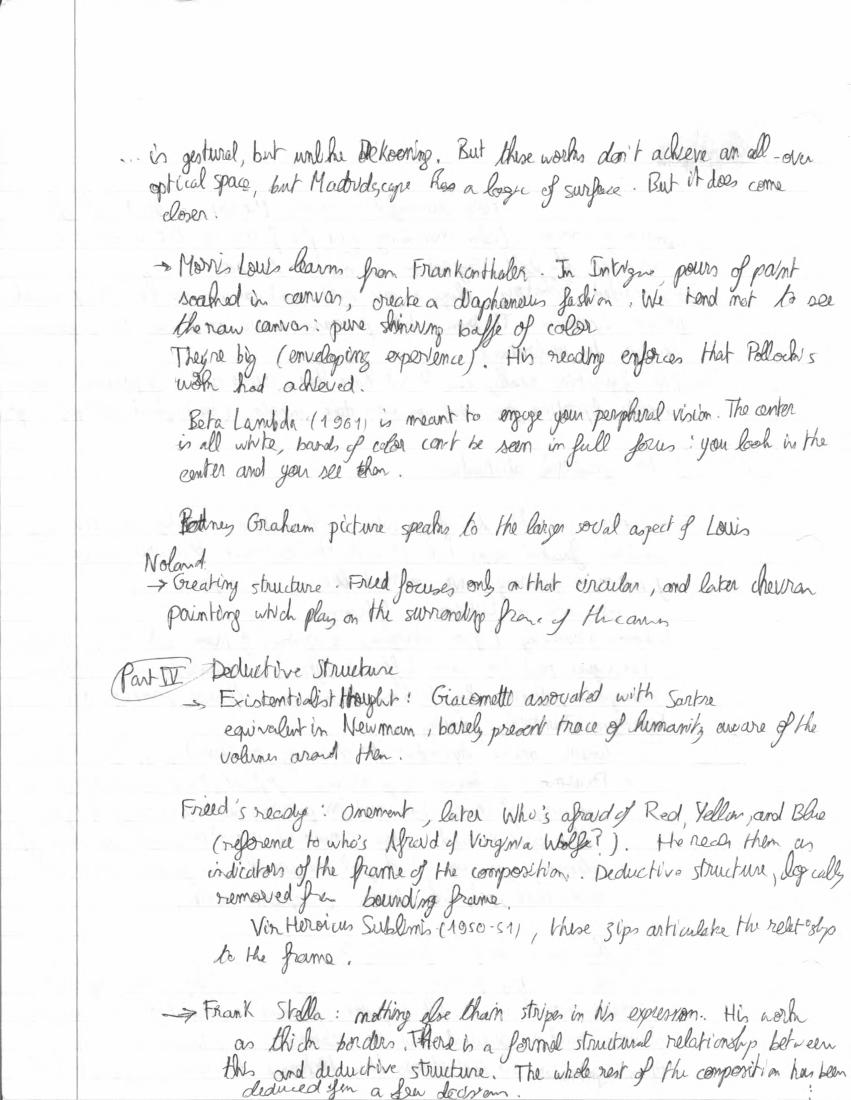 ... is gestural, but unlike DeKooning. But these works don't achieve an all-over
optical space, but Madridscape has a logic of surface. But it does come
closer.
→ Morris Louis learns from Frankenthaler. In Intrigue, pours of paint
soaked in canvas, create a diaphanous fashion. We tend not to see
the raw canvas: pure shimmering of color
They're big (enveloping experience). His reading enforces that Pollock's
work had achieved.
Beta Lambda (1961) is meant to engage your peripheral vision. The center
is all white, bands of color can't be seen in full focus: you look in the
center and you see then.
Rodney Graham picture speaks to the larger social aspect of Louis
Noland
→ Creating structure. Fried focuses only on that circular, and later chevron
painting which play on the surronding frame of the canvas
Part IV Deductive Structure
→ Existentialist thought: Giacometti associated with Sartre
equivalent in Newman, barely present trace of humanity aware of the
volumes around them.
Freed's reading: Onement, later Who's afraid of Red, Yellow, and Blue
(reference to who's Afraid of Virginia Wolfe?). He reads them as
indicators of the frame of the composition. Deductive structure, logically
removed from bounding frame.
Vir Heroicus Sublimis (1950-51), these zips articulate the relationship
to the frame.
→ Frank Stella: nothing else than stripes in his expression. His work
as thick borders. There is a formal structural relationship between
this and deductive structure. The whole rest of the composition has been
deduced from a few decisions.